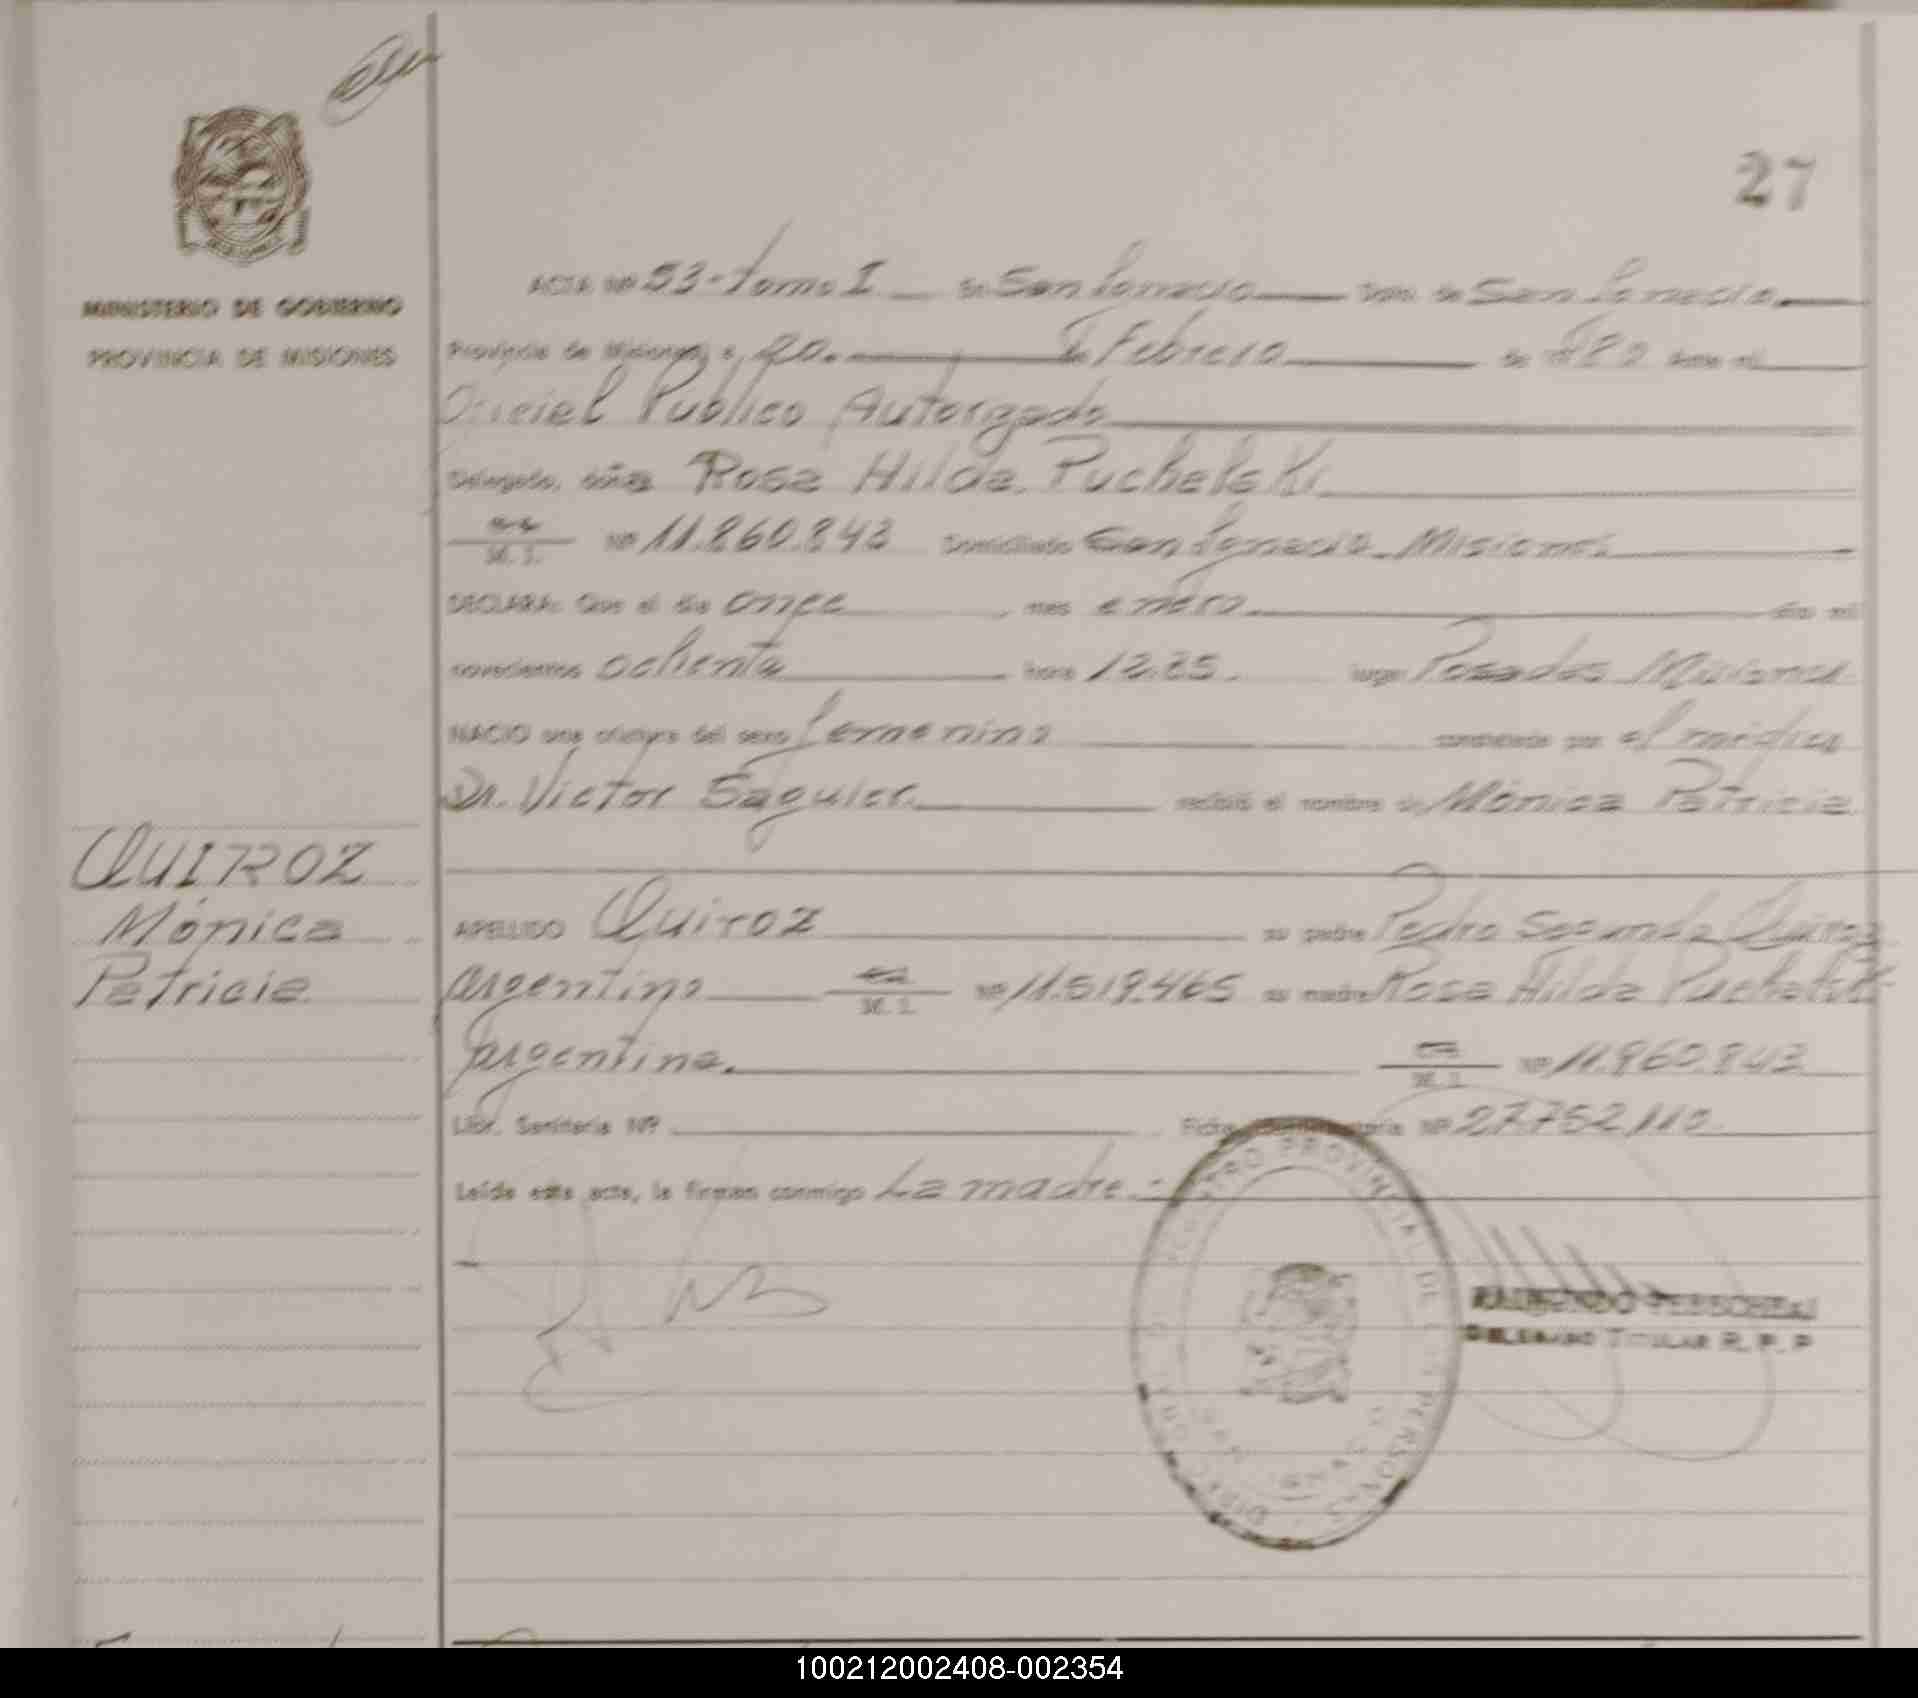 27
MINISTERIO DE GOBIERNO
PROVINCIA DE MISIONES
ACTA Nº 53-Tomo I en San Ignacio Dpto. de San Ignacio
Provincia de Misiones, a 20. de Febrero de 1980 ante mí
Oficial Público Autorgado
Delegado, doña Rosa Hilda Puchelski
M. I. Nº 11.860.843 Domiciliado San Ignacio Misiones
DECLARA: Que el día once, mes enero año mil
novecientos ochenta hora 12.35. lugar Posadas Misiones
NACIO una criatura del sexo femenino constatada por el médico
Dr. Victor Saguier. recibió el nombre de Mónica Patricia
QUIROZ
Mónica
Patricia
APELLIDO Quiroz su padre Pedro Segundo Quiroz
argentino M. I. Nº 11.519.465 su madre Rosa Hilda Puchelski
argentina. M. I. Nº 11.860.843
Libr. Sanitaria Nº Ficha Nº 27.752.110
Leída este acta, la firman conmigo La madre.-
REGISTRO PROVINCIAL DE LAS PERSONAS
SAN IGNACIO
DELEGADO TITULAR R. P. P
100212002408-002354